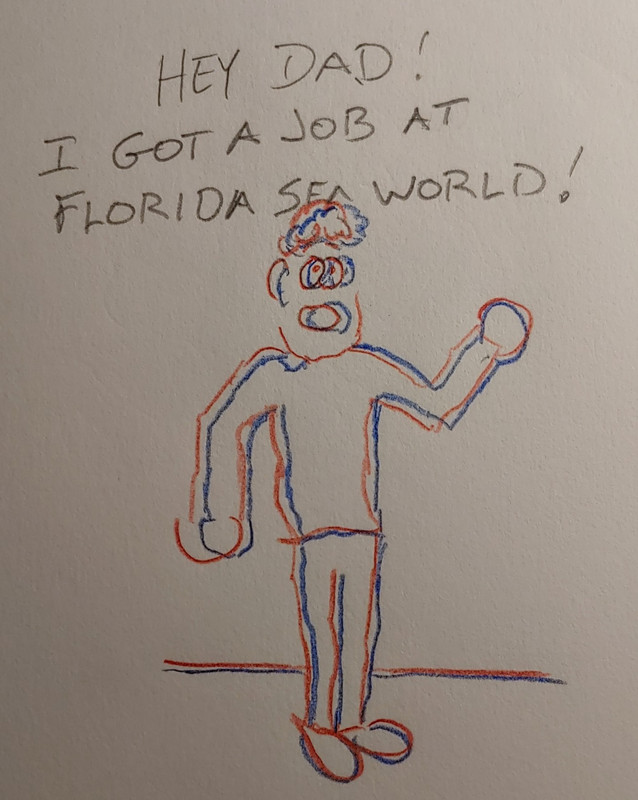 HEY DAD!
I GOT A JOB AT
FLORIDA SEA WORLD!